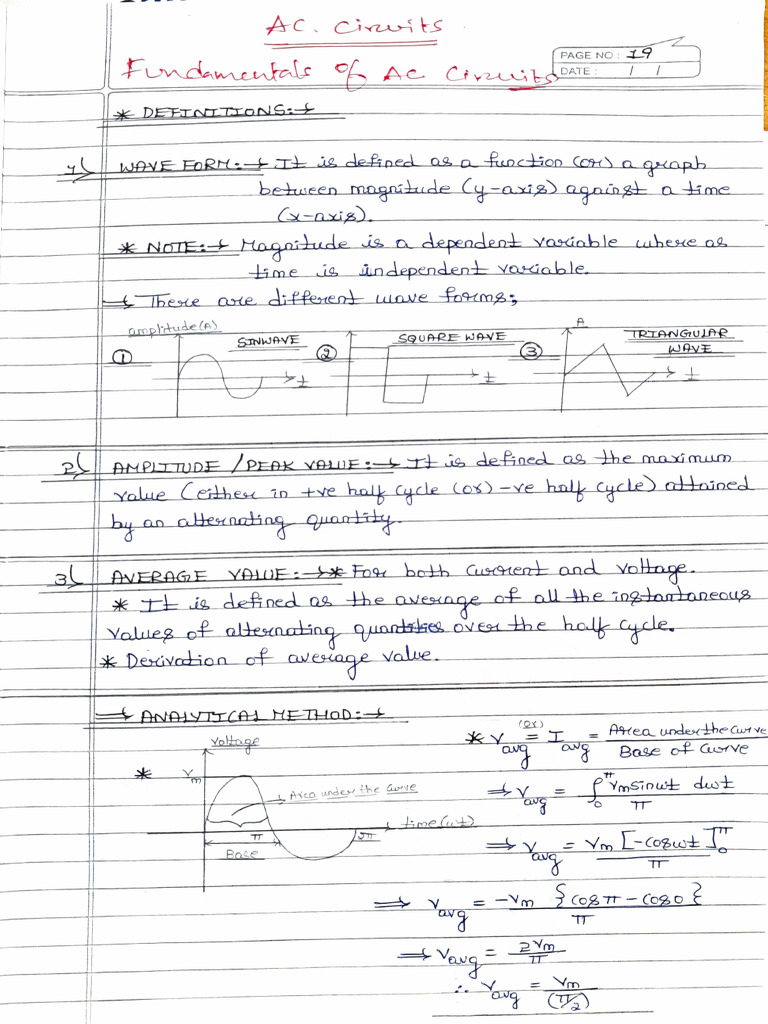 A.C. Circuits
Fundamentals of AC Circuits
PAGE NO : 19
DATE : / /
* DEFINITIONS:→
1) WAVE FORM:→ It is defined as a function (or) a graph
between magnitude (y-axis) against a time
(x-axis).
* NOTE:→ Magnitude is a dependent variable where as
time is independent variable.
→ There are different wave forms;
amplitude(A)
① SINWAVE t
② SQUARE WAVE t
③ A TRIANGULAR
WAVE
t
2) AMPLITUDE / PEAK VALUE:→ It is defined as the maximum
value (either in +ve half cycle (or) -ve half cycle) attained
by an alternating quantity.
3) AVERAGE VALUE:→* For both current and voltage.
* It is defined as the average of all the instantaneous
values of alternating quantities over the half cycle.
* Derivation of average value.
→ ANALYTICAL METHOD:→
voltage
* Vm
Area under the curve
time(ωt)
π 2π
Base
* Vavg (or) = Iavg = Area under the curve / Base of curve
⇒ Vavg = ∫₀^π Vm sinωt dωt / π
⇒ Vavg = Vm [-cosωt]₀^π / π
⇒ Vavg = -Vm {cosπ - cos0} / π
⇒ Vavg = 2Vm / π
∴ Vavg = Vm / (π/2)